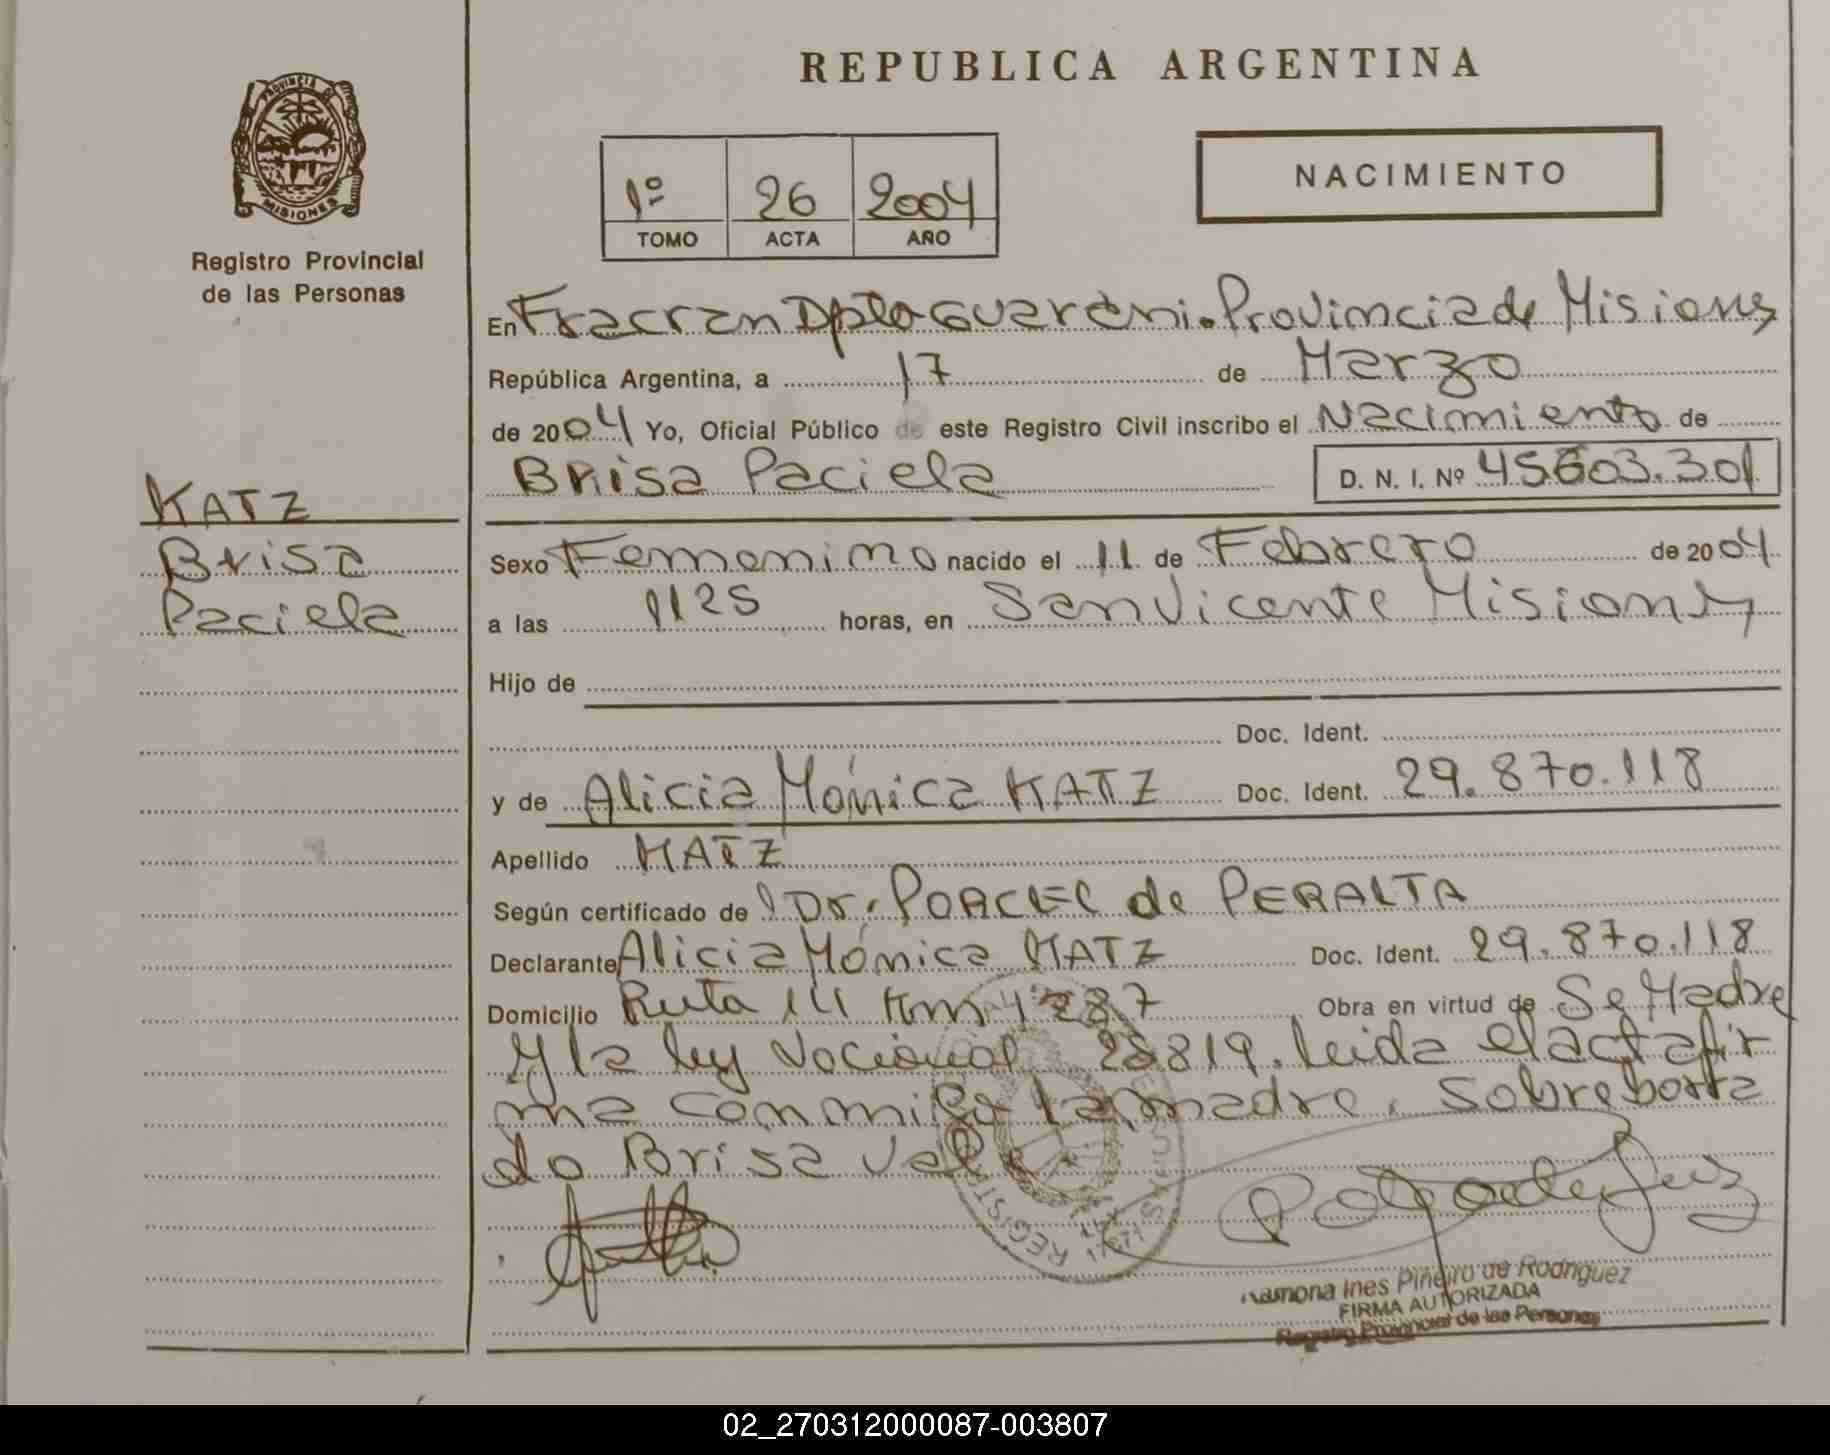 REPUBLICA ARGENTINA
PROVINCIA DE
MISIONES
Registro Provincial
de las Personas
1º 26 2004
TOMO ACTA AÑO
NACIMIENTO
En Fracran Dpto Guarani. Provincia de Misiones
República Argentina, a 17 de Marzo
de 2004 Yo, Oficial Público de este Registro Civil inscribo el Nacimiento de
Brisa Paciela D. N. I. Nº 45603.301
KATZ
Brisa
Paciela
Sexo Femenino nacido el 11 de Febrero de 2004
a las 1125 horas, en San Vicente Misiones
Hijo de
Doc. Ident.
y de Alicia Mónica KATZ Doc. Ident. 29.870.118
Apellido KATZ
Según certificado de Dr. PORCEL de PERALTA
Declarante Alicia Mónica KATZ Doc. Ident. 29.870.118
Domicilio Ruta Km 1287 Obra en virtud de Se Madre
y la ley Nacional 25819. Leida el acta fir
ma conmigo la madre. Sobreborra
do Brisa Vale
REGISTRO
Ramona Ines Piñeiro de Rodriguez
FIRMA AUTORIZADA
Registro Provincial de las Personas
02_270312000087-003807